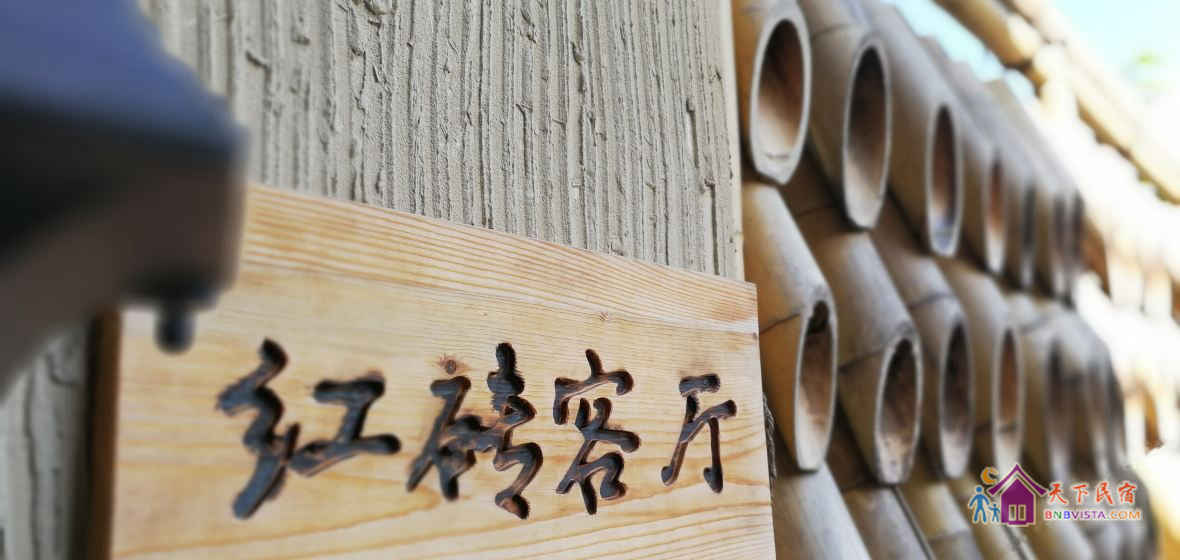 红砖客厅
天下民宿
BNBVISTA.COM